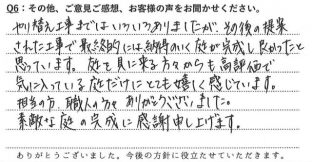 Q6:その他、ご意見ご感想、お客様の声をお聞かせください。
やり替え工事まではいろいろありましたが、その後の提案
された工事で最終的には納得のいく庭が完成し良かったと
思っています。庭を見に来る方々からも高評価で
気に入っている庭だけにとても嬉しく感じています。
担当の方、職人の方々ありがとうございました。
素敵な庭の完成に感謝申し上げます。
ありがとうございました。今後の方針に役立たせていただきます。